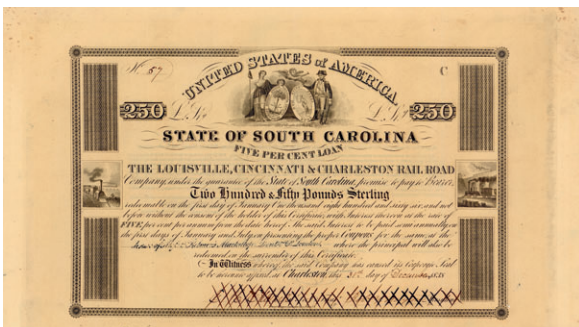 No. 57.
C
UNITED STATES of AMERICA
250 L. St. L. St. 250
STATE OF SOUTH CAROLINA
FIVE PER CENT LOAN
THE LOUISVILLE, CINCINNATI & CHARLESTON RAIL ROAD
Company, under the guarantee of the State of South Carolina, promise to pay to Bearer,
Two Hundred & Fifty Pounds Sterling
redeemable on the first day of January One thousand eight hundred and sixty six, and not
before without the consent of the holder of this Certificate, with Interest thereon at the rate of
FIVE per cent per annum from the date hereof. The said Interest to be paid semi annually on
the first days of January and July on presenting the proper Coupons for the same, at the
house of London where the principal will also be
redeemed on the surrender of this Certificate.
In Witness whereof the said Company has caused its Corporate Seal
to be hereunto affixed, at Charleston, this 31st day of December 1838